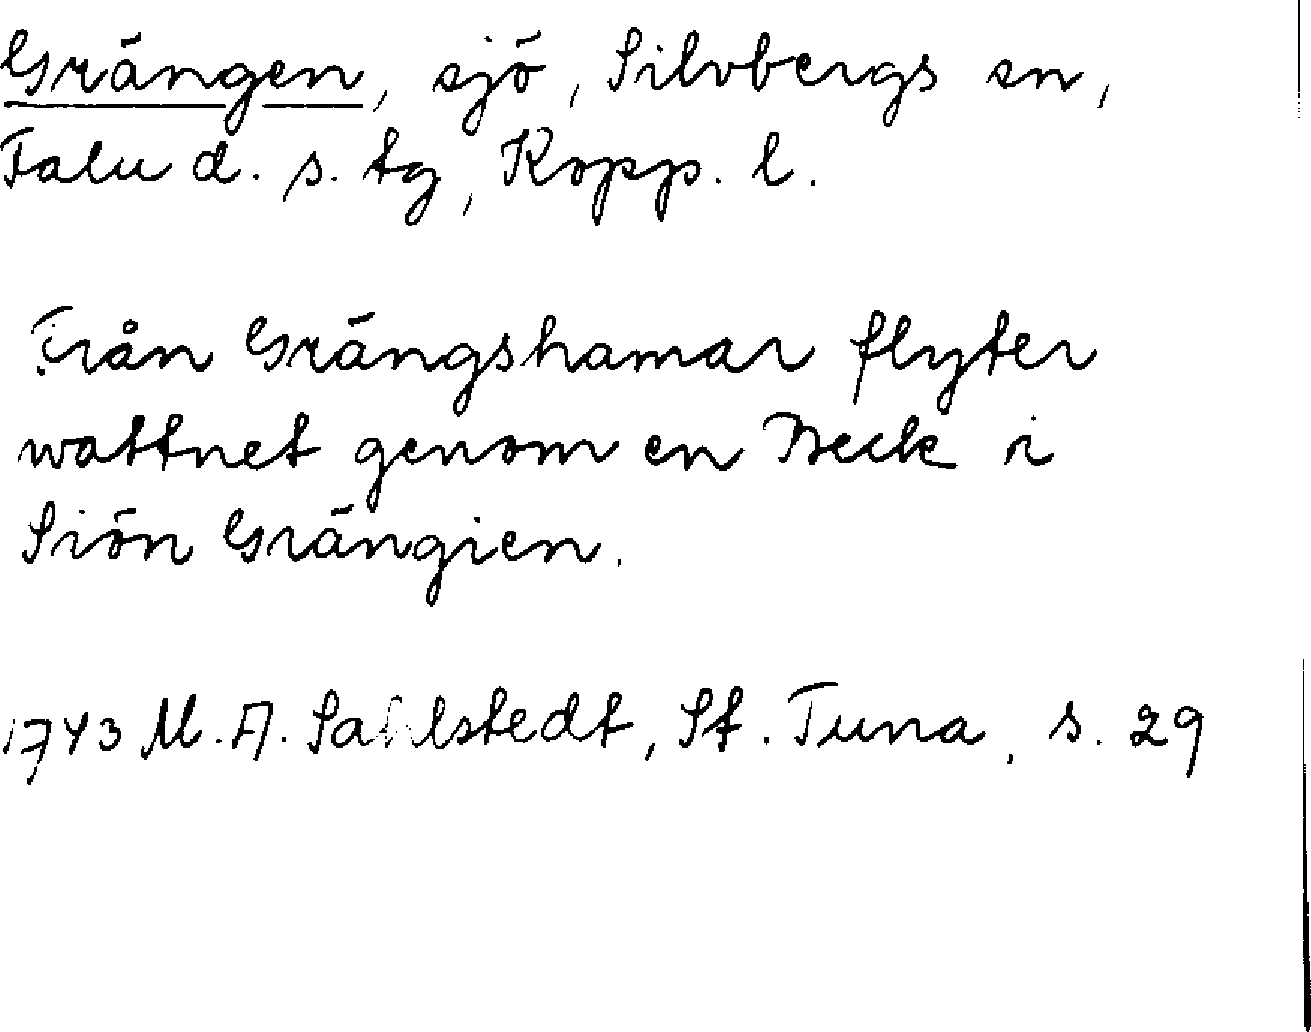 Grängen, sjö, Silvbergs sn,
Falu d. s. tg, Kopp. l.
Från Grängshamar flyter
wattnet genom en Beck i
Siön Grängien.
1743 M. A. Sahlstedt, St. Tuna, s. 29